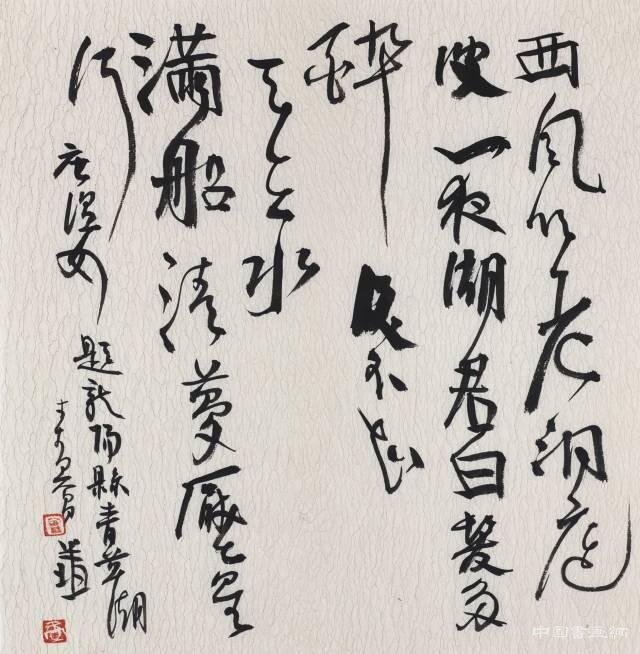 西風吹老洞庭
波一夜湖君白髮多
醉後不知
天在水
滿船清夢壓星
河 唐溫如
題龍陽縣青草湖
中国書画网